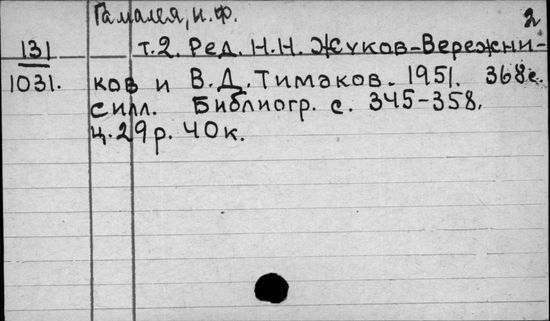 Гамалея, Н.Ф.
2
131 т.2. Ред. Н.Н. Жуков-Вережни-
1031. ков и В.Д. Тимаков. 1951. 368 с.
с илл. Библиогр. с. 345-358.
ц. 29 р. 40 к.